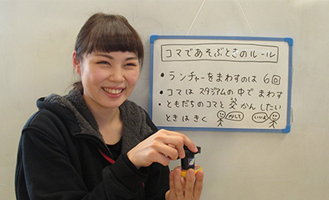 コマであそぶときのルール
・ランチャーをまわすのは 6回
・コマは スタジアムの中でまわす
・ともだちのコマと交かんしたい
ときはきく
かして
いいよ